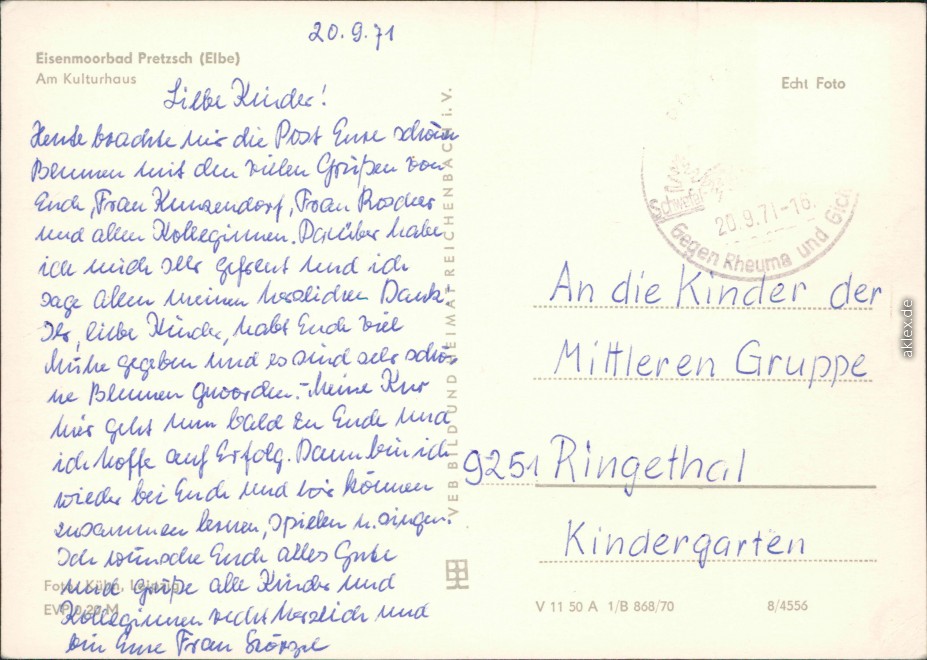 20.9.71
Eisenmoorbad Pretzsch (Elbe)
Am Kulturhaus
Liebe Kinder!
Heute brachte mir die Post Eure schönen
Blumen mit den vielen Grüßen von
Euch, Frau Kunzendorf, Frau Roscher
und allen Kolleginnen. Darüber habe
ich mich sehr gefreut und ich
sage allen meinen herzlichen Dank.
Ihr, liebe Kinder, habt Euch viel
Mühe gegeben und es sind sehr schö-
ne Blumen geworden. – Meine Kur
hier geht nun bald zu Ende und
ich hoffe auf Erfolg. Dann bin ich
wieder bei Euch und wir können
zusammen lernen, spielen u. singen.
Ich wünsche Euch alles Gute
und grüße alle Kinder und
Kolleginnen recht herzlich und
bin Eure Frau
Foto: Kühn, Leipzig
EVP 0,20 M
VEB BILD UND HEIMAT REICHENBACH i. V.
Echt Foto
Schwefel
20.9.71-16
Gegen Rheuma und Gicht
An die Kinder der
Mittleren Gruppe
9251 Ringethal
Kindergarten
V 11 50 A 1/B 868/70
8/4556
aklex.de